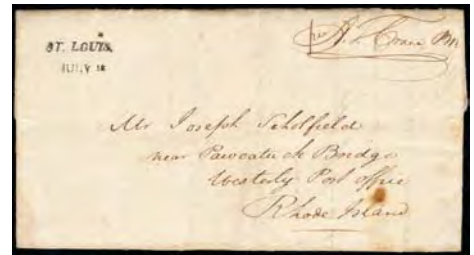 ST. LOUIS,
JULY 18
Free A. T. Crane PM
Mr Joseph Scholfield
near Pawcatuck Bridge
Westerly Post office
Rhode Island